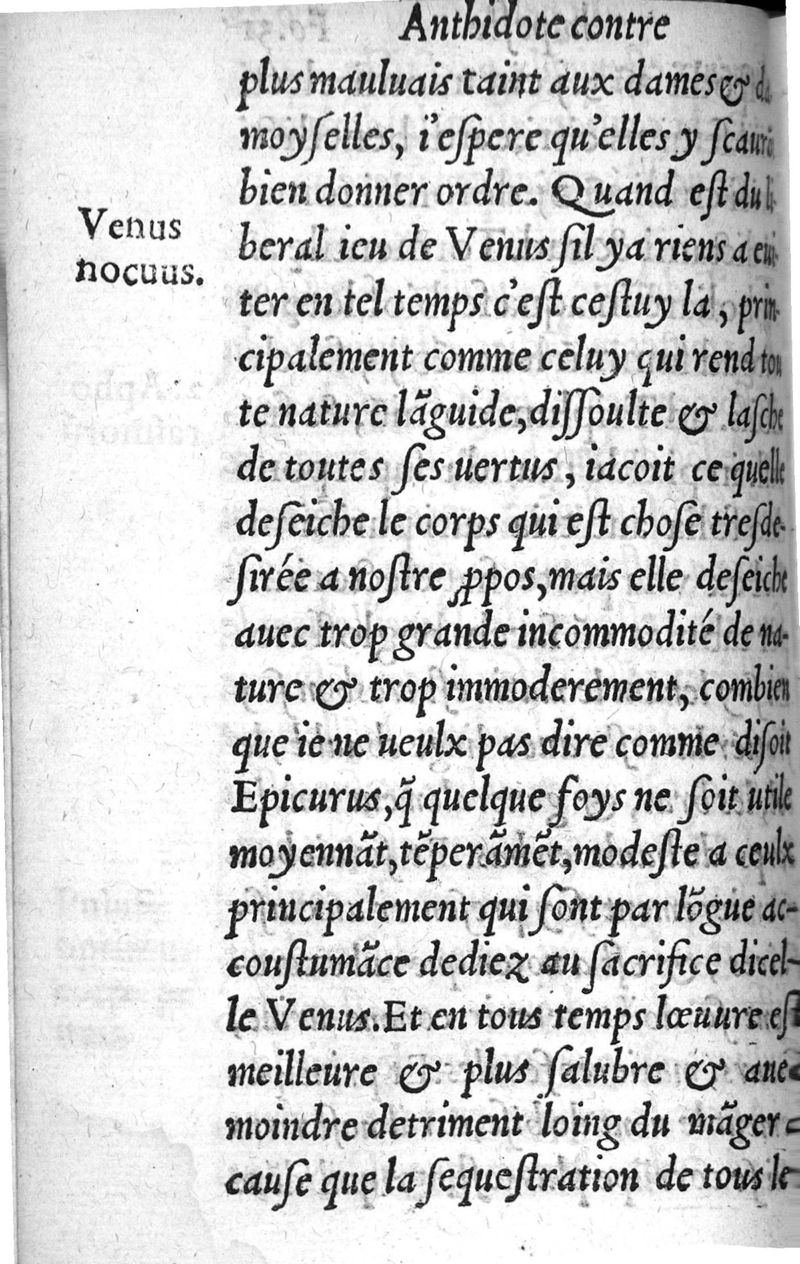 Anthidote contre
plus mauluais taint aux dames & da
moyſelles, i'eſpere qu'elles y ſcaurõ
bien donner ordre. Quand eſt du li
Venus
nocuus.
beral ieu de Venus ſil ya riens a eui-
ter en tel temps c'eſt ceſtuy la, prin-
cipalement comme celuy qui rend tou
te nature lãguide, diſſoulte & laſche
de toutes ſes uertus, iacoit ce quelle
deſeiche le corps qui eſt choſe treſde-
ſirée a noſtre ꝓpos, mais elle deſeiche
auec trop grande incommodité de na-
ture & trop immoderement, combien
que ie ne ueulx pas dire comme diſoit
Epicurus, q̃ quelque foys ne ſoit utile
moyennãt, tẽperãmẽt, modeſte a ceulx
principalement qui ſont par lõgue ac-
couſtumãce dediez au ſacrifice dicel-
le Venus. Et en tous temps lœuure eſt
meilleure & plus ſalubre & auec
moindre detriment loing du mãger
cauſe que la ſequeſtration de tous le